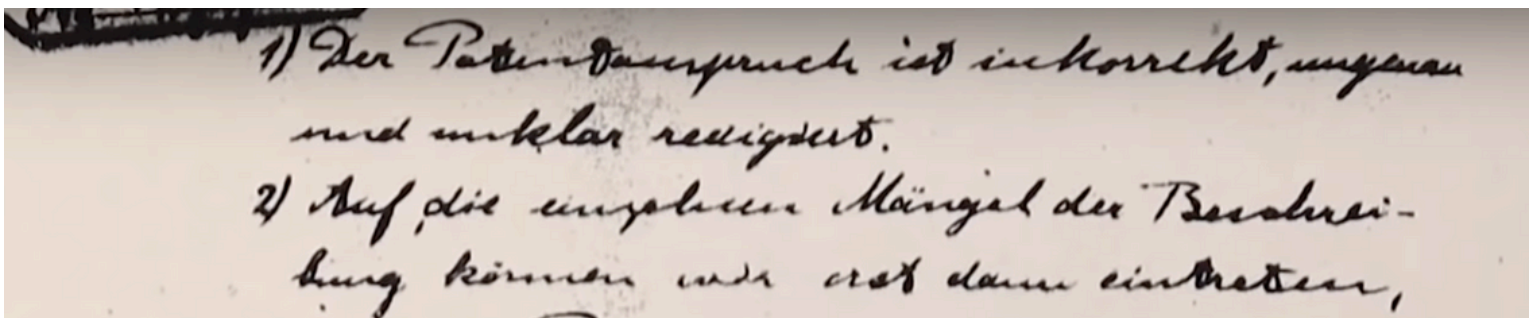 1) Der Patentanspruch ist inkorrekt, ungenau
und unklar redigiert.
2) Auf die einzelnen Mängel der Beschrei-
bung können wir erst dann eintreten,